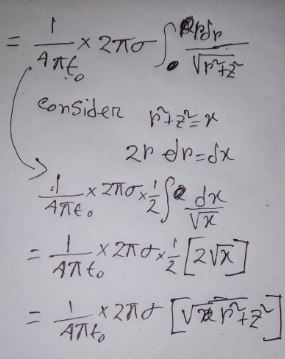 = 1/4πt₀ × 2πσ ∫₀^R rdr/√r²+z²
consider r²+z²=x
2r dr=dx
1/4πt₀ × 2πσ × 1/2 ∫ dx/√x
= 1/4πt₀ × 2πσ × 1/2 [2√x]
= 1/4πt₀ × 2πσ [√r²+z²]